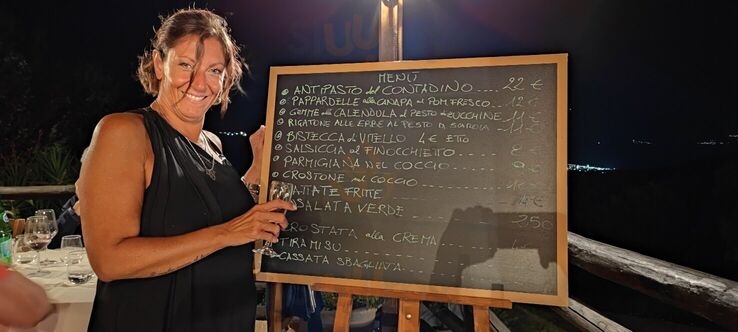 MENÙ
ANTIPASTO del CONTADINO.... 22 €
PAPPARDELLE alla CANAPA al POM.FRESCO... 12 €
GEMME alla CALENDULA al PESTO di ZUCCHINE 11 €
RIGATONE ALLE ERBE AL PESTO DI 11 €
BISTECCA di VITELLO 4€ ETTO
SALSICCIA al FINOCCHIETTO
PARMIGIANA NEL COCCIO
CROSTONE nel COCCIO
PATATE FRITTE
INSALATA VERDE
CROSTATA alla CREMA
TIRAMISU
CASSATA SBAGLIATA